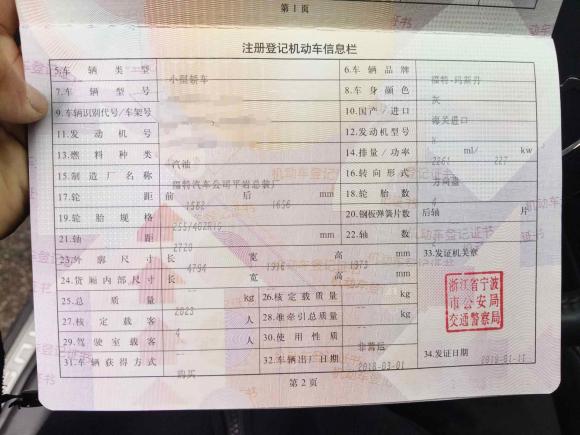 第 1 页
注册登记机动车信息栏
5.车 辆 类 型 小型轿车 6.车 辆 品 牌 福特-玛斯丹
7.车 辆 型 号 8.车 身 颜 色 灰
9.车辆识别代号/车架号 10.国产/进口 海关进口
11.发 动 机 号 12.发动机型号
13.燃 料 种 类 汽油 14.排量/功率 2261 ml/ 227 kw
15.制造厂名称 福特汽车公司平岩总装厂 16.转向形式 方向盘
17.轮 距 前 1582 后 1656 mm 18.轮 胎 数 4
19.轮 胎 规 格 255/40ZR19 20.钢板弹簧片数 后轴 片
21.轴 距 2720 mm 22.轴 数
23.外 廓 尺 寸 长 4794 宽 1916 高 1373 mm 33.发证机关章
24.货厢内部尺寸 长 宽 高 mm
25.总 质 量 2023 kg 26.核定载质量 -- kg
27.核 定 载 客 4 人 28.准牵引总质量 -- kg
29.驾 驶 室 载 客 -- 人 30.使 用 性 质 非营运
31.车辆获得方式 购买 32.车辆出厂日期 2018-03-01 34.发证日期
浙江省宁波
市公安局
交通警察局
第 2 页